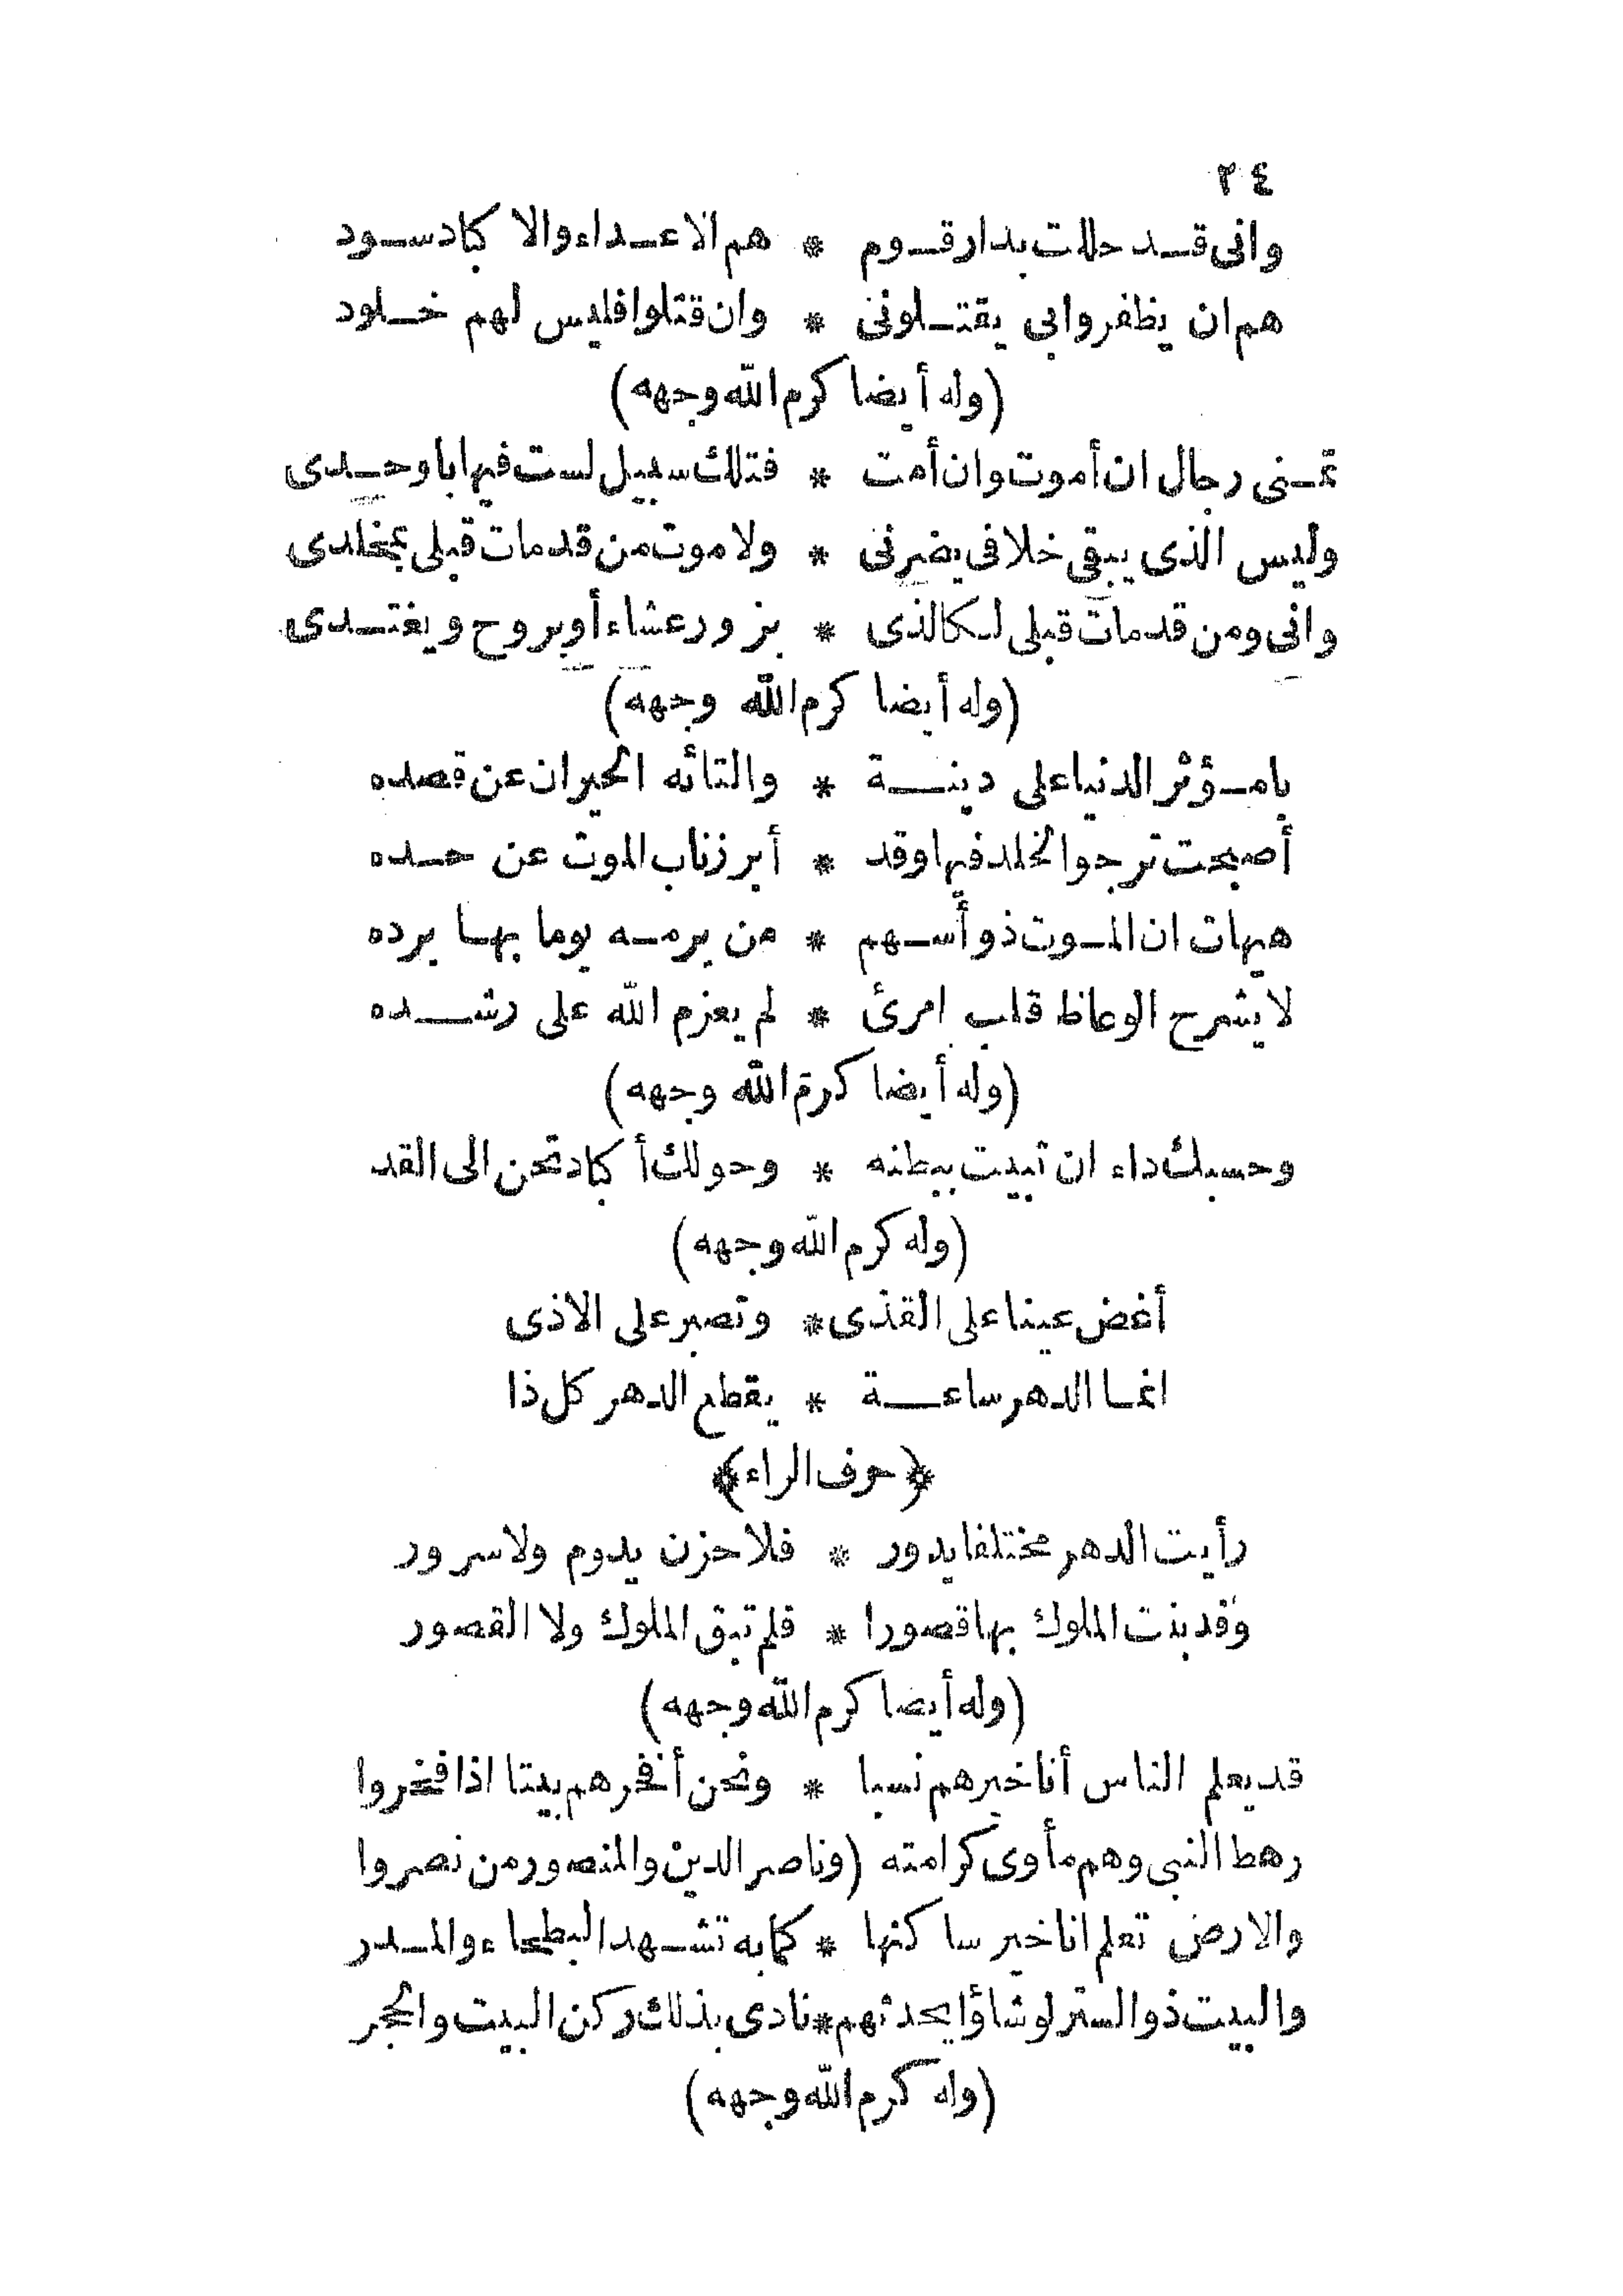 ٢٤
وانى قد حللت بدار قوم * هم الاعداء والا كباد سود
هم ان يظفروا بى يقتلونى * وان قتلوا فليس لهم خلود
(وله أيضا كرم الله وجهه)
تمنى رجال ان أموت وان أمت * فتلك سبيل لست فيها باوحدى
وليس الذى يبقى خلافى يضرنى * ولا موت من قد مات قبلى بمخلدى
وانى ومن قد مات قبلى لكالذى * يزور عشاء أو يروح ويغتدى
(وله أيضا كرم الله وجهه)
يا مؤثر الدنيا على دينة * والتائه الحيران عن قصده
أصبحت ترجو الخلد فيها وقد * أبرز ناب الموت عن حده
هيهات ان الموت ذو أسهم * من يرمه يوما بها يرده
لا يشرح الوعاظ قلب امرئ * لم يعزم الله على رشده
(وله أيضا كرم الله وجهه)
وحسبك داء ان تبيت ببطنه * وحولك أكباد تحن الى القد
(وله كرم الله وجهه)
أغض عينا على القذى * وتصبر على الاذى
انما الدهر ساعة * يقطع الدهر كل ذا
﴿حرف الراء﴾
رأيت الدهر مختلفا يدور * فلا حزن يدوم ولا سرور
وقد بنت الملوك بها قصورا * فلم تبق الملوك ولا القصور
(وله أيضا كرم الله وجهه)
قد يعلم الناس أنا خيرهم نسبا * ونحن أفخرهم بيتا اذا فخروا
رهط النبى وهم مأوى كرامته (وناصر الدين والمنصور من نصروا
والارض تعلم انا خير ساكنها * كما به تشهد البطحاء والمدر
والبيت ذو الستر لو شاؤا يحدثهم * نادى بذلك ركن البيت والحجر
(وله كرم الله وجهه)